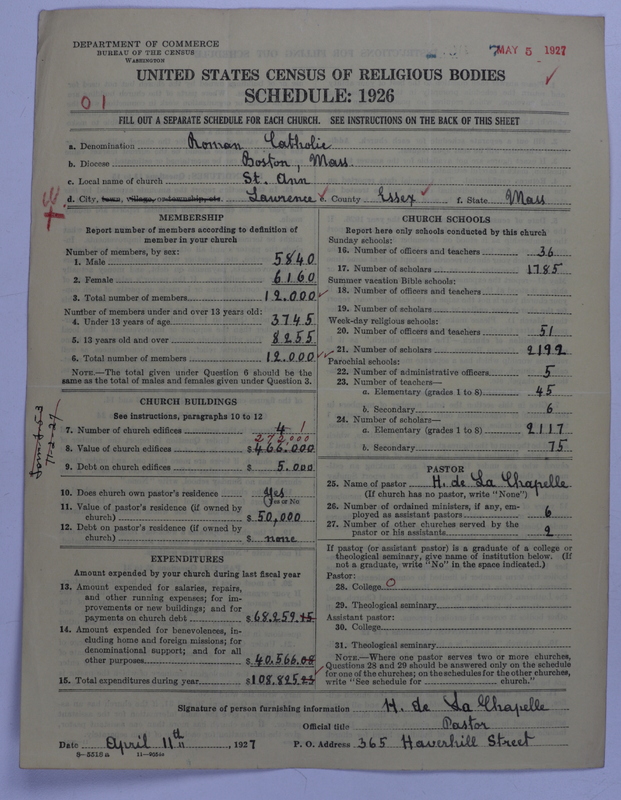 DEPARTMENT OF COMMERCE
BUREAU OF THE CENSUS
WASHINGTON
7 MAY 5 1927
UNITED STATES CENSUS OF RELIGIOUS BODIES
SCHEDULE: 1926
01
FILL OUT A SEPARATE SCHEDULE FOR EACH CHURCH. SEE INSTRUCTIONS ON THE BACK OF THIS SHEET
a. Denomination Roman Catholic
b. Diocese Boston, Mass.
c. Local name of church St. Ann
d. City, town, village, or township, etc. Lawrence e. County Essex f. State Mass
MEMBERSHIP
Report number of members according to definition of
member in your church
Number of members, by sex:
1. Male 5840
2. Female 6160
3. Total number of members 12.000
Number of members under and over 13 years old:
4. Under 13 years of age 3745
5. 13 years old and over 8255
6. Total number of members 12.000
NOTE.—The total given under Question 6 should be the
same as the total of males and females given under Question 3.
CHURCH BUILDINGS
See instructions, paragraphs 10 to 12
7. Number of church edifices 4 1
272,000
8. Value of church edifices $466.000
9. Debt on church edifices $ 5.000
10. Does church own pastor's residence Yes
Yes or No
11. Value of pastor's residence (if owned by
church) $50,000
12. Debt on pastor's residence (if owned by
church) $ none
EXPENDITURES
Amount expended by your church during last fiscal year
13. Amount expended for salaries, repairs,
and other running expenses; for im-
provements or new buildings; and for
payments on church debt $68.259.15
14. Amount expended for benevolences, in-
cluding home and foreign missions; for
denominational support; and for all
other purposes $40.566.08
15. Total expenditures during year $108.825.23
CHURCH SCHOOLS
Report here only schools conducted by this church
Sunday schools:
16. Number of officers and teachers 36
17. Number of scholars 1785
Summer vacation Bible schools:
18. Number of officers and teachers
19. Number of scholars
Week-day religious schools:
20. Number of officers and teachers 51
21. Number of scholars 2192
Parochial schools:
22. Number of administrative officers 5
23. Number of teachers—
a. Elementary (grades 1 to 8) 45
b. Secondary 6
24. Number of scholars—
a. Elementary (grades 1 to 8) 2117
b. Secondary 75
PASTOR
25. Name of pastor H. de La Chapelle
(If church has no pastor, write "None")
26. Number of ordained ministers, if any, em-
ployed as assistant pastors 6
27. Number of other churches served by the
pastor or his assistants 2
If pastor (or assistant pastor) is a graduate of a college or
theological seminary, give name of institution below. (If
not a graduate, write "No" in the space indicated.)
Pastor:
28. College O
29. Theological seminary
Assistant pastor:
30. College
31. Theological seminary
NOTE.—Where one pastor serves two or more churches,
Questions 28 and 29 should be answered only on the schedule
for one of the churches; on the schedules for the other churches,
write "See schedule for church."
Signature of person furnishing information H. de La Chapelle
Official title Pastor
Date April 11th, 1927 P. O. Address 365 Haverhill Street
8-5515a